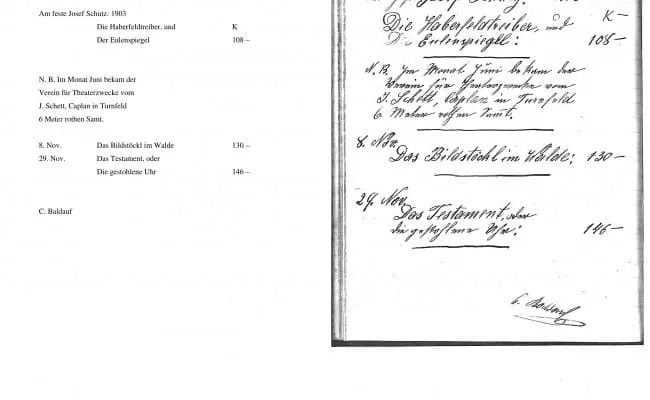 Am feste Josef Schutz: 1903
Die Haberfeldtreiber, und K
Der Eulenspiegel 108 –
N. B. Im Monat Juni bekam der
Verein für Theaterzwecke vom
J. Schett, Caplan in Turnfeld
6 Meter rothen Samt.
8. Nov. Das Bildstöckl im Walde 130 –
29. Nov. Das Testament, oder
Die gestohlene Uhr 146 –
C. Baldauf
K –
Die Haberfeldtreiber, und
Die Eulenspiegel: 108 –
N. B. Im Monat Juni bekam der
Verein für Theaterzwecke vom
J. Schett, Caplan in Turnfeld
6 Meter rothen Samt.
8. Nov.
Das Bildstöckl im Walde: 130 –
29. Nov.
Das Testament, oder
die gestohlene Uhr: 146 –
C. Baldauf